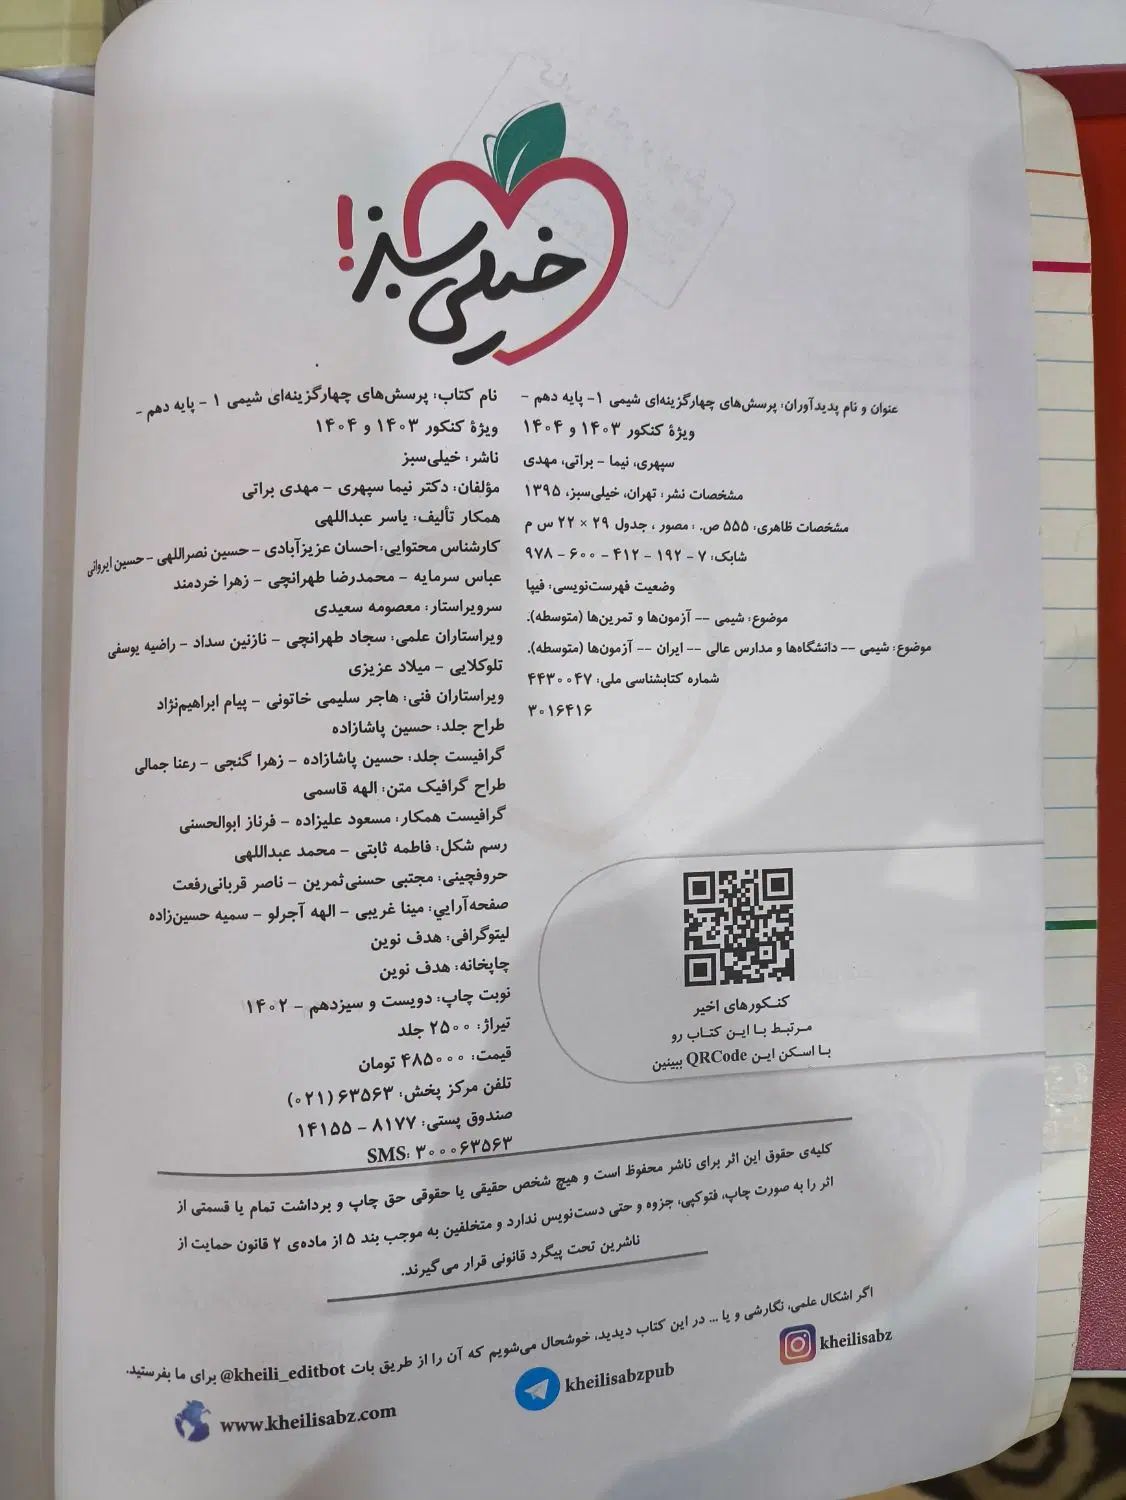 خیلی سبز!
عنوان و نام پدیدآوران: پرسش‌های چهارگزینه‌ای شیمی ۱- پایه دهم -
ویژهٔ کنکور ۱۴۰۳ و ۱۴۰۴
سپهری، نیما - براتی، مهدی
مشخصات نشر: تهران، خیلی‌سبز، ۱۳۹۵
مشخصات ظاهری: ۵۵۵ ص. : مصور ، جدول ۲۹ × ۲۲ س م
شابک: ۷ - ۱۹۲ - ۴۱۲ - ۶۰۰ - ۹۷۸
وضعیت فهرست‌نویسی: فیپا
موضوع: شیمی -- آزمون‌ها و تمرین‌ها (متوسطه).
موضوع: شیمی -- دانشگاه‌ها و مدارس عالی -- ایران -- آزمون‌ها (متوسطه).
شماره کتابشناسی ملی: ۴۴۳۰۰۴۷
۳۰۱۶۴۱۶
نام کتاب: پرسش‌های چهارگزینه‌ای شیمی ۱ - پایه دهم -
ویژهٔ کنکور ۱۴۰۳ و ۱۴۰۴
ناشر: خیلی‌سبز
مؤلفان: دکتر نیما سپهری - مهدی براتی
همکار تألیف: یاسر عبداللهی
کارشناس محتوایی: احسان عزیزآبادی - حسین نصراللهی - حسین ایروانی
عباس سرمایه - محمدرضا طهرانچی - زهرا خردمند
سرویراستار: معصومه سعیدی
ویراستاران علمی: سجاد طهرانچی - نازنین سداد - راضیه یوسفی
تلوکلایی - میلاد عزیزی
ویراستاران فنی: هاجر سلیمی خاتونی - پیام ابراهیم‌نژاد
طراح جلد: حسین پاشازاده
گرافیست جلد: حسین پاشازاده - زهرا گنجی - رعنا جمالی
طراح گرافیک متن: الهه قاسمی
گرافیست همکار: مسعود علیزاده - فرناز ابوالحسنی
رسم شکل: فاطمه ثابتی - محمد عبداللهی
حروفچینی: مجتبی حسنی‌ثمرین - ناصر قربانی‌رفعت
صفحه‌آرایی: مینا غریبی - الهه آجرلو - سمیه حسین‌زاده
لیتوگرافی: هدف نوین
چاپخانه: هدف نوین
نوبت چاپ: دویست و سیزدهم - ۱۴۰۲
تیراژ: ۲۵۰۰ جلد
قیمت: ۴۸۵۰۰۰ تومان
تلفن مرکز پخش: ۶۳۵۶۳ (۰۲۱)
صندوق پستی: ۸۱۷۷ - ۱۴۱۵۵
SMS: ۳۰۰۰۶۳۵۶۳
کنکورهای اخیر
مرتبط با این کتاب رو
با اسکن این QRCode ببینین
کلیه‌ی حقوق این اثر برای ناشر محفوظ است و هیچ شخص حقیقی یا حقوقی حق چاپ و برداشت تمام یا قسمتی از
اثر را به صورت چاپ، فتوکپی، جزوه و حتی دست‌نویس ندارد و متخلفین به موجب بند ۵ از ماده‌ی ۲ قانون حمایت از
ناشرین تحت پیگرد قانونی قرار می‌گیرند.
اگر اشکال علمی، نگارشی و یا ... در این کتاب دیدید، خوشحال می‌شویم که آن را از طریق بات @kheili_editbot برای ما بفرستید.
kheilisabz
kheilisabzpub
www.kheilisabz.com